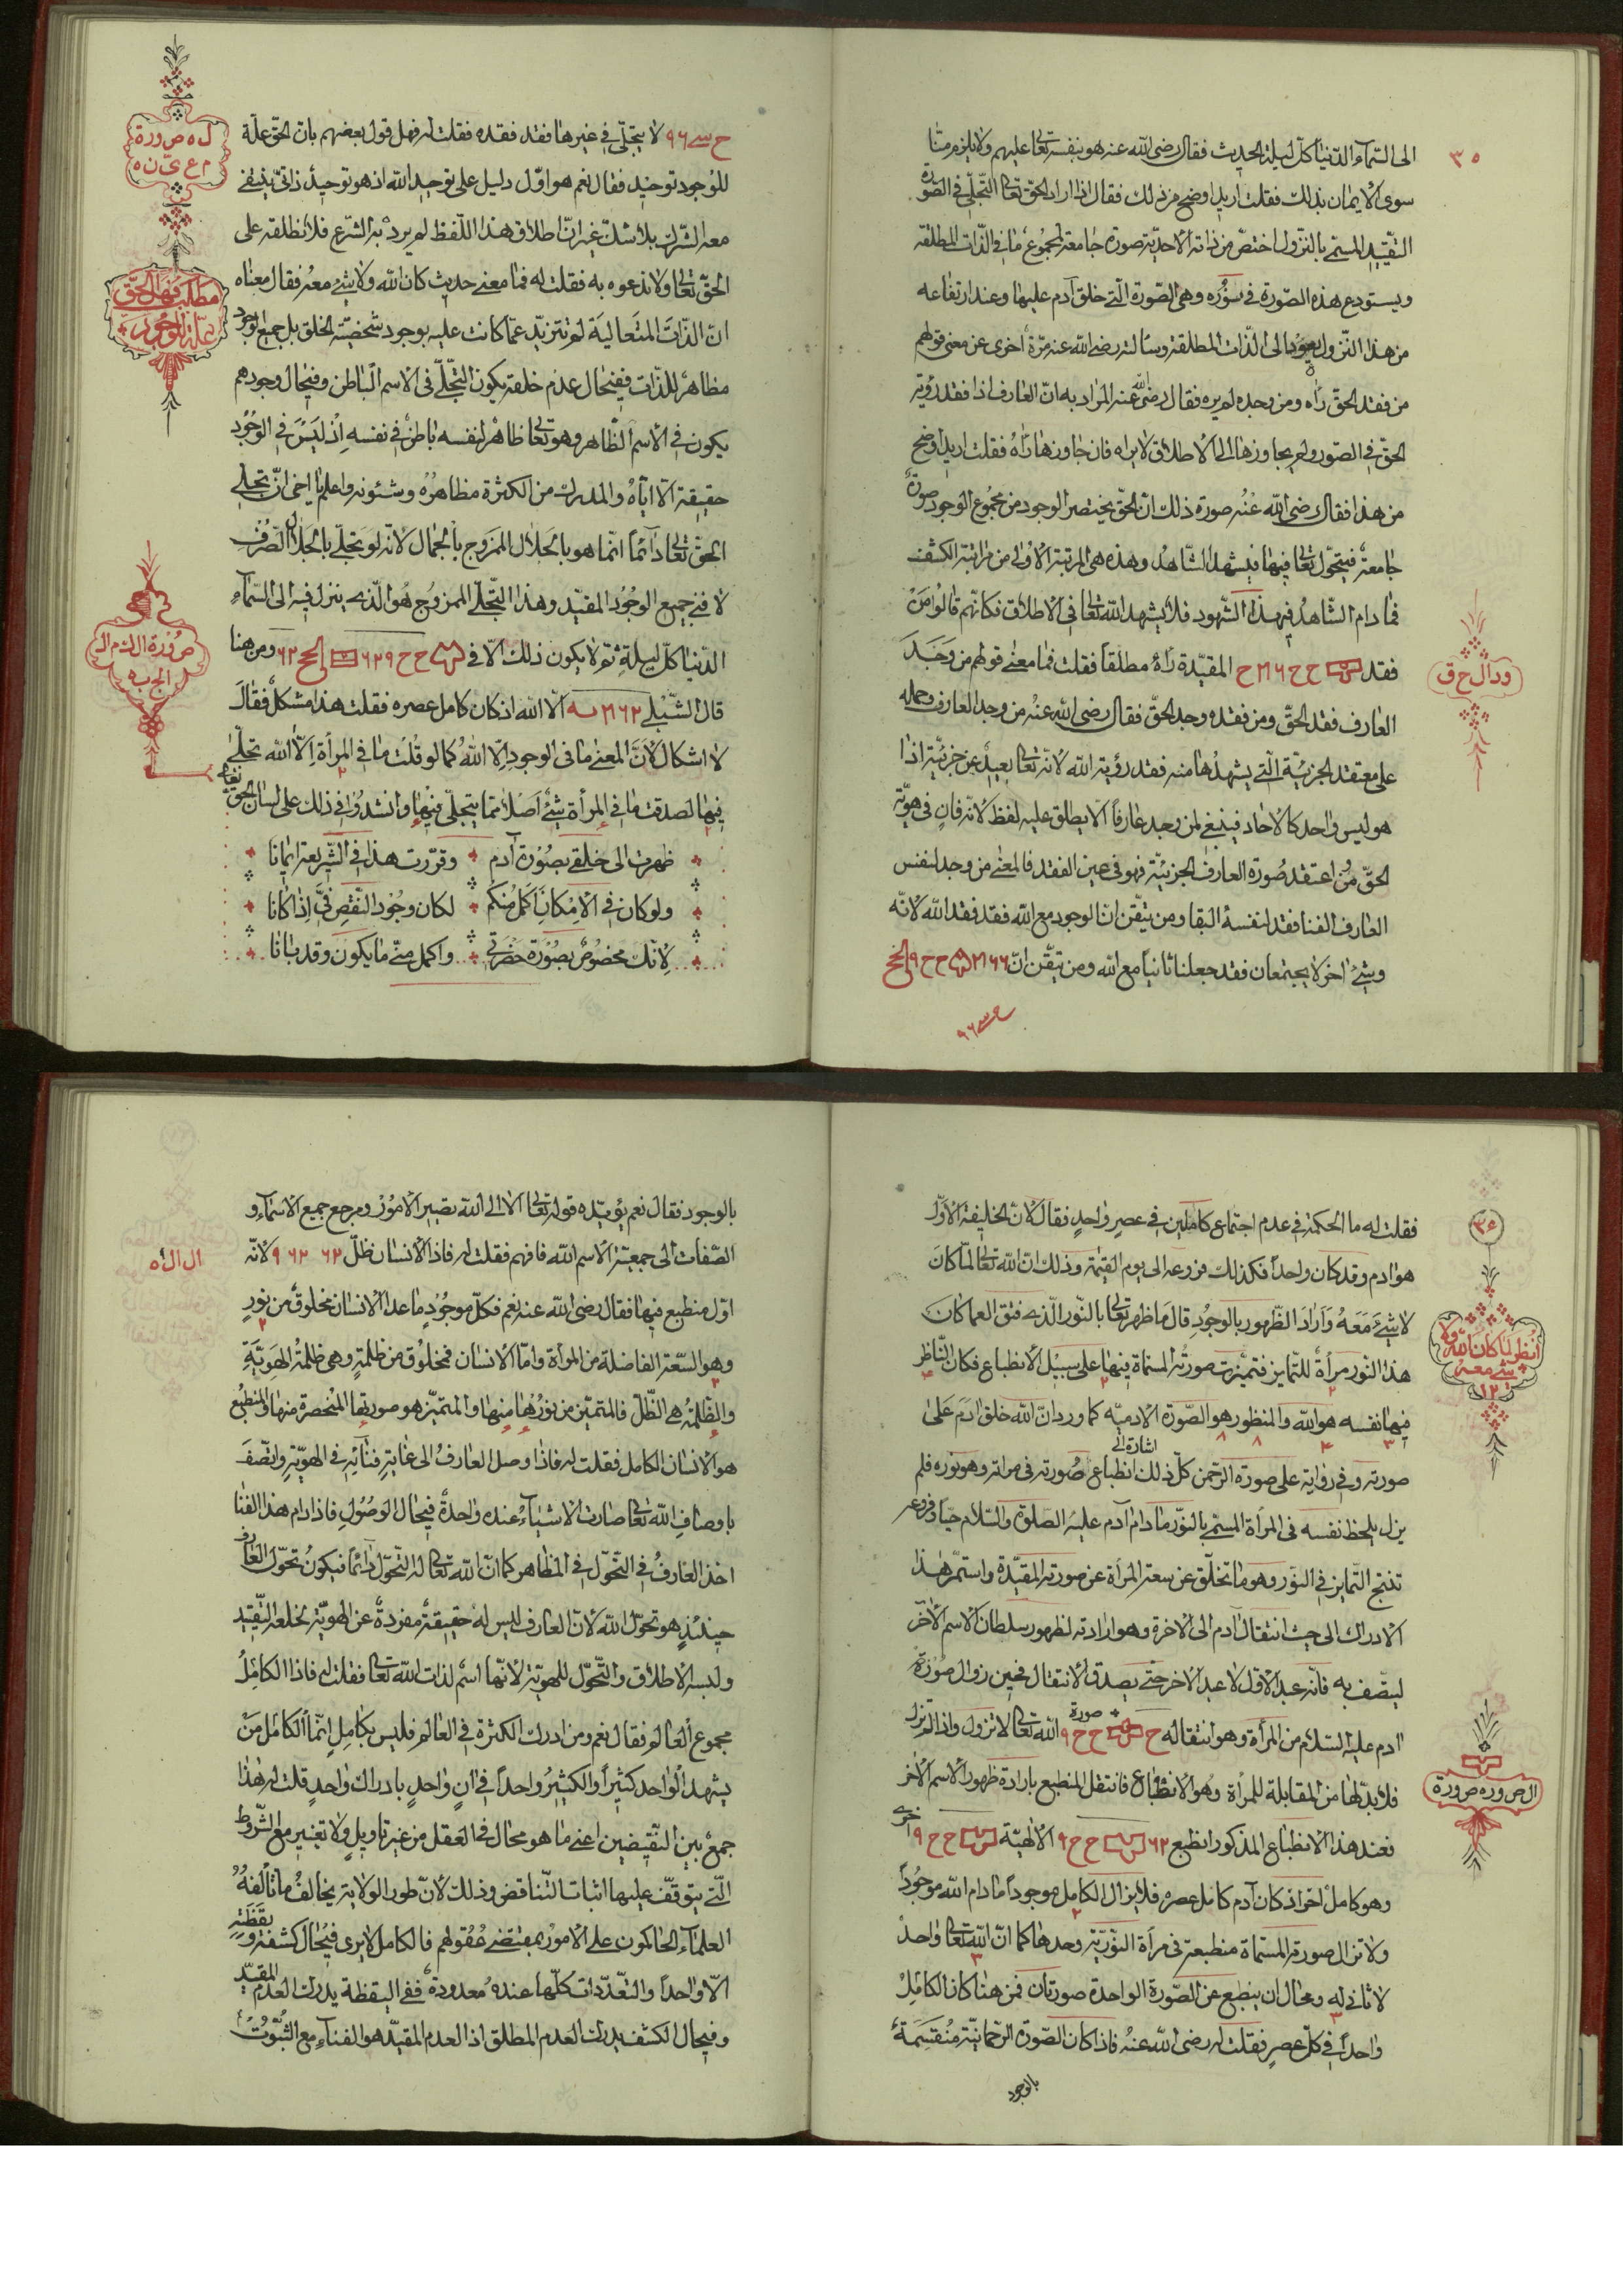 ٣٥
الى السّمآء الدّنيا كلّ ليلة الحديث فقال رضى الله عنه هو بنفسه تعالى عليهم ولا يلزم منّا
سوى الايمان بذلك فقلت اريد اوضح من ذلك فقال اذا اراد الحقّ تعالى التّجلّى فى الصّورة
التّقييد المسمّى بالنزول اختصّ من ذاته الاحديّة صورة جامعة لمجموع ما فى الذّات المطلقة
ويستودع هذه الصّورة فى سوره وهى الصّورة الّتى خلق آدم عليها وعند ارتفاعه
من هذا النزول يعود الى الذّات المطلقة وسالته رضى الله عنه مرّة اخرى عن معنى قولهم
من فقد الحقّ رآه ومن وجده لم يره فقال رضى الله عنه المراد به انّ العارف اذا فقد رؤية
الحقّ فى الصّور ولم يجاوزها الى الاطلاق لا يراه فان جاوزها رآه فقلت اريد اوضح
من هذا فقال رضى الله عنه صورة ذلك انّ الحقّ يختصر الوجود من مجموع الوجود صورة
جامعة فيتحوّل تعالى فيها فيشهد الشّاهد وهذه هى المرتبة الاولى من مراتبة الكشف
فما دام الشّاهد فى هذا الشّهود فلا يشهد الله تعالى فى الاطلاق فكانّهم قالوا من
فقد المقيّدة رآه مطلقاً فقلت فما معنى قولهم من وجد
العارف فقد الحقّ ومن فقده وجد الحقّ فقال رضى الله عنه من وجد العارف وحمله
على معتقد الجزئيّة الّتى يشهدها منه فقد رؤية الله لانّه تعالى بعيد عن جزئيّة اذا
هو ليس واحد كالاحاد فينبغى لمن وجد عارفاً الا يطلق عليه لفظ لانّه فان فى هويّة
الحقّ ومن اعتقد صورة العارف الجزئيّة فهو فى عين الفقد فالمعنى من وجد لنفس
العارف الفنا فقد لنفسه البقا ومن تيقّن ان الوجود مع الله فقد فقد الله لانّه
وشئ اخر لا يجتمعان فقد جعلنا ثانياً مع الله ومن تيقّن انّ
ودال ح ق
ح سے ٩٦ لا يتجلّى فى غيرها فقد فقده فقلت له فهل قول بعضهم بانّ الحقّ علّة
للوجود توحيد فقال نعم هو اوّل دليل على توحيد الله اذ هو توحيد ذاتىّ ينتفى
معه الشّرك بلا شكّ غير انّ اطلاق هذا اللّفظ لم يرد به الشّرع فلا نطلقه على
الحقّ تعالى ولا ندعوه به فقلت له فما معنى حديث كان الله ولا شئ معه فقال معناه
انّ الذّات المتعالية لم تتزيّد عمّا كانت عليه بوجود شخصيّة الخلق بل جميع الوجود
مظاهر للذّات ففى حال عدم خلقه يكون التّجلّى فى الاسم الباطن وفى حال وجودهم
يكون فى الاسم الظّاهر وهو تعالى ظاهر لنفسه باطن فى نفسه اذ ليس فى الوجود
حقيقة الّا ايّاه والمدرك من الكثرة مظاهره وشئونه واعلم يا اخى انّ تجلّى
الحقّ تعالى دائماً انّما هو بالجلال الممزوج بالجمال لانّه لو تجلّى بالجلال الصّرف
لافنى جميع الوجود المقيّد وهذا التّجلّى الممزوج هو الّذى ينزل فيه الى السّمآء
الدّنيا كلّ ليلة ثمّ لا يكون ذلك الّا فى ومن هنا
قال الشّبلى الّا الله اذ كان كامل عصره فقلت هذا مشكل فقال
لا اشكال لانّ المعنى ما فى الوجود الّا الله كما لو قلت ما فى المرأة الّا الله تجلّى
فيها لصدقت ما فى المرأة شئ اصلا ممّا يتجلّى فيها وانشدوا فى ذلك على لسان الحقّ تعالى
ظهرت الى خلقى بصورة آدم وقرّرت هذا فى الشّريعة ايمانا
ولو كان فى الامكان اكمل منكم لكان وجود النّقص فىّ اذا كانا
لانّك مخصوص بصورة حضرتى واكمل منّى ما يكون وقد بانا
ل ه ص ورة
م ع ىّ ن ه
مطلب فهل الحقّ
علّة الوجود
صورة ال ادم ال
الج ب ه
٣٦
فقلت له ما الحكمة فى عدم اجتماع كاملين فى عصر واحد فقال لانّ الخليفة الاوّل
هو ادم وقد كان واحداً فكذلك فروعه الى يوم القيمة وذلك انّ الله تعالى لمّا كان
لا شئ معه وارد الظّهور بالوجود قال ما ظهر تعالى بالنّور الّذى فتق العما كان
هذا النّور مرأة للتّمايز فتميّزت صورته المسمّاة فيها على سبيل الانطباع فكان النّاظر
فيها نفسه هو الله والمنظور هو الصّورة الادميّه كما ورد انّ الله خلق ادم على
صورته وفى رواية على صورة الرّحمن كلّ ذلك اشارة الى انطباع صورته فى مراته وهو نوره فلم
يزل يلحظ نفسه فى المرأة المسمّى بالنّور ما دام آدم عليه الصّلوة والسّلام حيّاً وفروعه
تنتج التّمايز فى النّور وهو ما تخلّق عن سعة المرأة عن صورته المقيّدة واستمرّ هذا
الادراك الى حيث انتقال آدم الى الاخرة وهو ارادته لظهور سلطان الاسم الآخر
ليتّصف به فانّه عبد الاوّل لا عبد الاخر حتّى يصدق الانتقال فحين زوال صورة
ادم عليه السّلام من المرأة وهو انتقاله صورة الله تعالى لا تزول واذا لم تزل
فلا بدّ لها من المقابلة للمرأة وهو الانطباع فانتقل المنطبع بارادة ظهور الاسم الاخر
فعند هذا الانطباع المذكور انطبع الالهيّة اخرى
وهو كامل اخر اذ كان آدم كامل عصره فلا يزال الكامل موجوداً ما دام الله موجوداً
ولا تزال صورته المسمّاة منطبعة فى مرأة النّوريّة وحدها كما انّ الله تعالى واحد
لا ثانى له ومحال ان ينطبع عن الصّورة الواحدة صورتان فمن هنا كان الكامل
واحداً فى كلّ عصر فقلت له رضى الله عنه فاذا كان الصّورة الرّحمانيّة منقسمة
بالوجود
انظر لما كان الله ولا
شئ معه
١٢
ال ص ور ه ص ورة
بالوجود فقال نعم يؤيّده قوله تعالى الا الى الله تصير الامور ومرجع جميع الاسمآء و
الصّفات الى جمعيّة الاسم الله فافهم فقلت له فاذا الانسان ظلّ ٦٢ ٦٢ ٩ لانّه
اوّل منطبع فيها فقال رضى الله عنه نعم فكلّ موجود ما عدا الانسان مخلوق من نور
وهو السّعة الفاضلة من المرأة وامّا الانسان فمخلوق من ظلمة وهى ظلمة الهويّة
والظّلمة هى الظّلّ فالمتميّز من نورها منها والمتميّز هو صورتها المنحصرة منها والمنطبع
هو الانسان الكامل فقلت له فاذا وصل العارف الى غاية فنائه فى الهويّة واتّصف
باوصاف الله تعالى صارت الاشيآء عنده واحدة فى حال الوصول فاذا دام هذا الفنا
اخذ العارف فى التّحوّل فى المظاهر كما انّ الله تعالى له التّحوّل دائماً فيكون تحوّل العارف
حينئذ هو تحوّل الله لانّ العارف ليس له حقيقة مفردة عن الهويّة لخلعه التّقييد
ولبسه الاطلاق والتّحوّل للهويّة لانّها اسم لذات الله تعالى فقلت له فاذا الكامل
مجموع العالم فقال نعم ومن ادرك الكثرة فى العالم فليس بكامل انّما الكامل من
يشهد الواحد كثيراً والكثير واحداً فى ان واحد بادراك واحد قلت له هذا
جمع بين النّقيضين اعنى ما هو محال فى العقل من غير تاويل ولا تغيير مع الشّروط
الّتى يتوقّف عليها اثبات التّناقض وذلك لانّ طور الولاية يخالف ما تألفه
العلمآء الحاكمون على الامور بمقتضى عقولهم فالكامل لا يرى فى حال كشفه ويقظته
الّا واحداً والتّعدّدات كلّها عنده معدودة ففى اليقظة يدرك العدم المقيّد
وفى حال الكشف يدرك العدم المطلق اذ العدم المقيّد هو الفنآء مع الثّبوت
ال ال ه